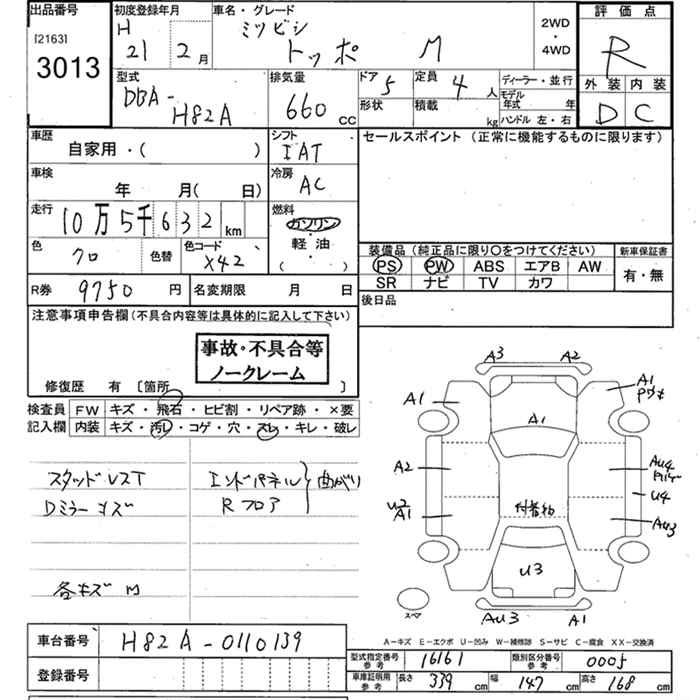 出品番号
[2163]
3013
初度登録年月
H
21 2月
車名・グレード
ミツビシ
トッポ M
2WD
・
4WD
評価点
R
外装 内装
D C
型式
DBA-
H82A
排気量
660 cc
ドア 5
定員 4 人
形状
積載 kg
ディーラー・並行
モデル
年式 年
ハンドル 左・右
車歴
自家用・( )
シフト
IAT
セールスポイント (正常に機能するものに限ります)
車検
年 月( 日)
冷房
AC
走行
10万5千632 km
燃料
ガソリン
・
軽油
( )
色
クロ
色替
色コード
X42
装備品 (純正品に限り〇をつけてください)
PS PW ABS エアB AW
SR ナビ TV カワ
新車保証書
有・無
R券 9750 円
名変期限 月 日
後日品
注意事項申告欄(不具合内容等は具体的に記入して下さい)
事故・不具合等
ノークレーム
修復歴 有 [箇所 ]
検査員
記入欄
FW キズ・飛石・ヒビ割・リペア跡・×要
内装 キズ・汚レ・コゲ・穴・スレ・キレ・破レ
スタッドレスT
Dミラーキズ
各キズ M
エンドパネル
Rフロア
曲がり
A3 A2
A1
A1
A1
A2
AU4
U4
U2
A1
付着物
AU3
U3
スペア
AU3 A1
A-キズ E-エクボ U-凹み W-補修跡 S-サビ C-腐食 XX-交換済
車台番号 H82A-0110139
登録番号
型式指定番号
参考
16161
類別区分番号
参考
0005
車庫証明用
参考
長さ 339 cm
幅 147 cm
高さ 168 cm